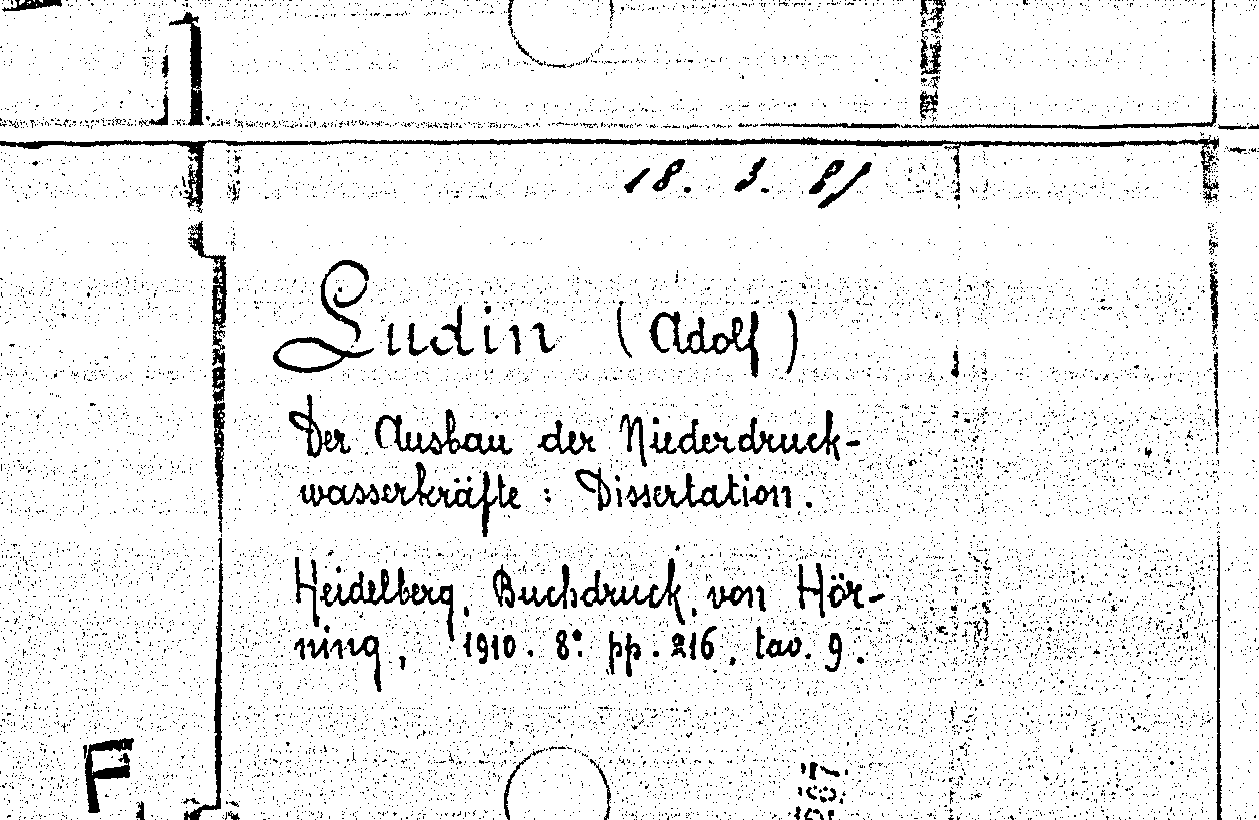 18. 3. 81
Ludin (Adolf)
Der Ausbau der Niederdruck-
wasserkräfte : Dissertation.
Heidelberg, Buchdruck. von Hör-
ning, 1910. 8° pp. 216, tav. 9.
F